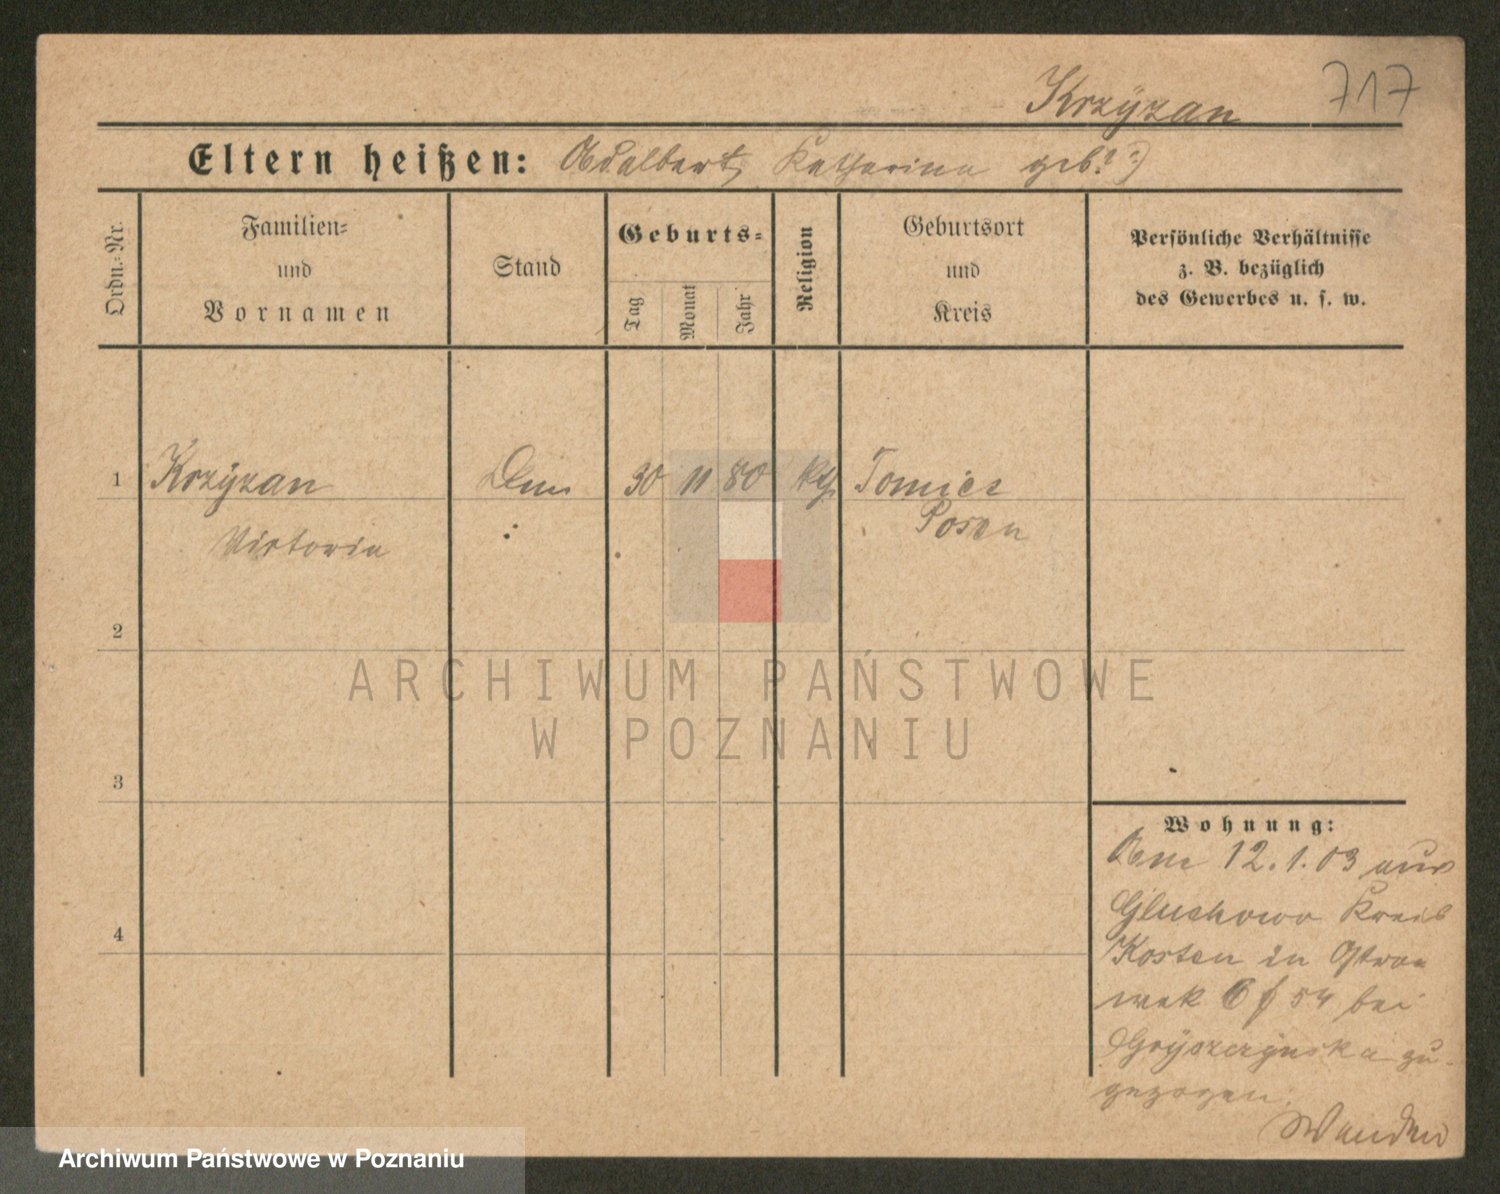 Krzÿzan 717
Eltern heißen: Adalbert, Katharina geb. ?)
Ordn.-Nr.
Familien-
und
Vornamen
Stand
Geburts-
Tag
Monat
Jahr
Religion
Geburtsort
und
Kreis
Persönliche Verhältnisse
z. B. bezüglich
des Gewerbes u. s. w.
1 Krzÿzan 30 11 80 kth Tomice
Posen
Victoria
2
ARCHIWUM PAŃSTWOWE
W POZNANIU
3
Wohnung:
Am 12.1.03 aus
Gluchowo Kreis
4
Kosten in
54 bei
zu-
gezogen.
Archiwum Państwowe w Poznaniu